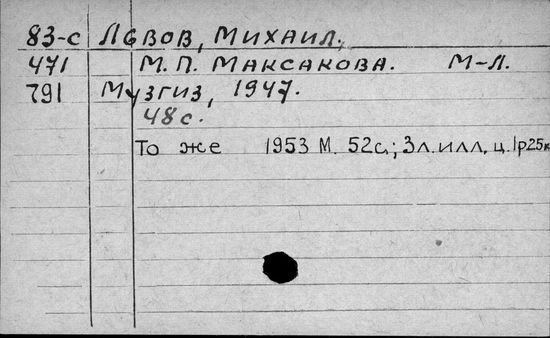 83-с Львов, Михаил.
471 М. П. Максакова. М-Л.
791 Музгиз, 1947.
48 с.
То же 1953 М. 52с.; 3л.илл. ц. 1р25к